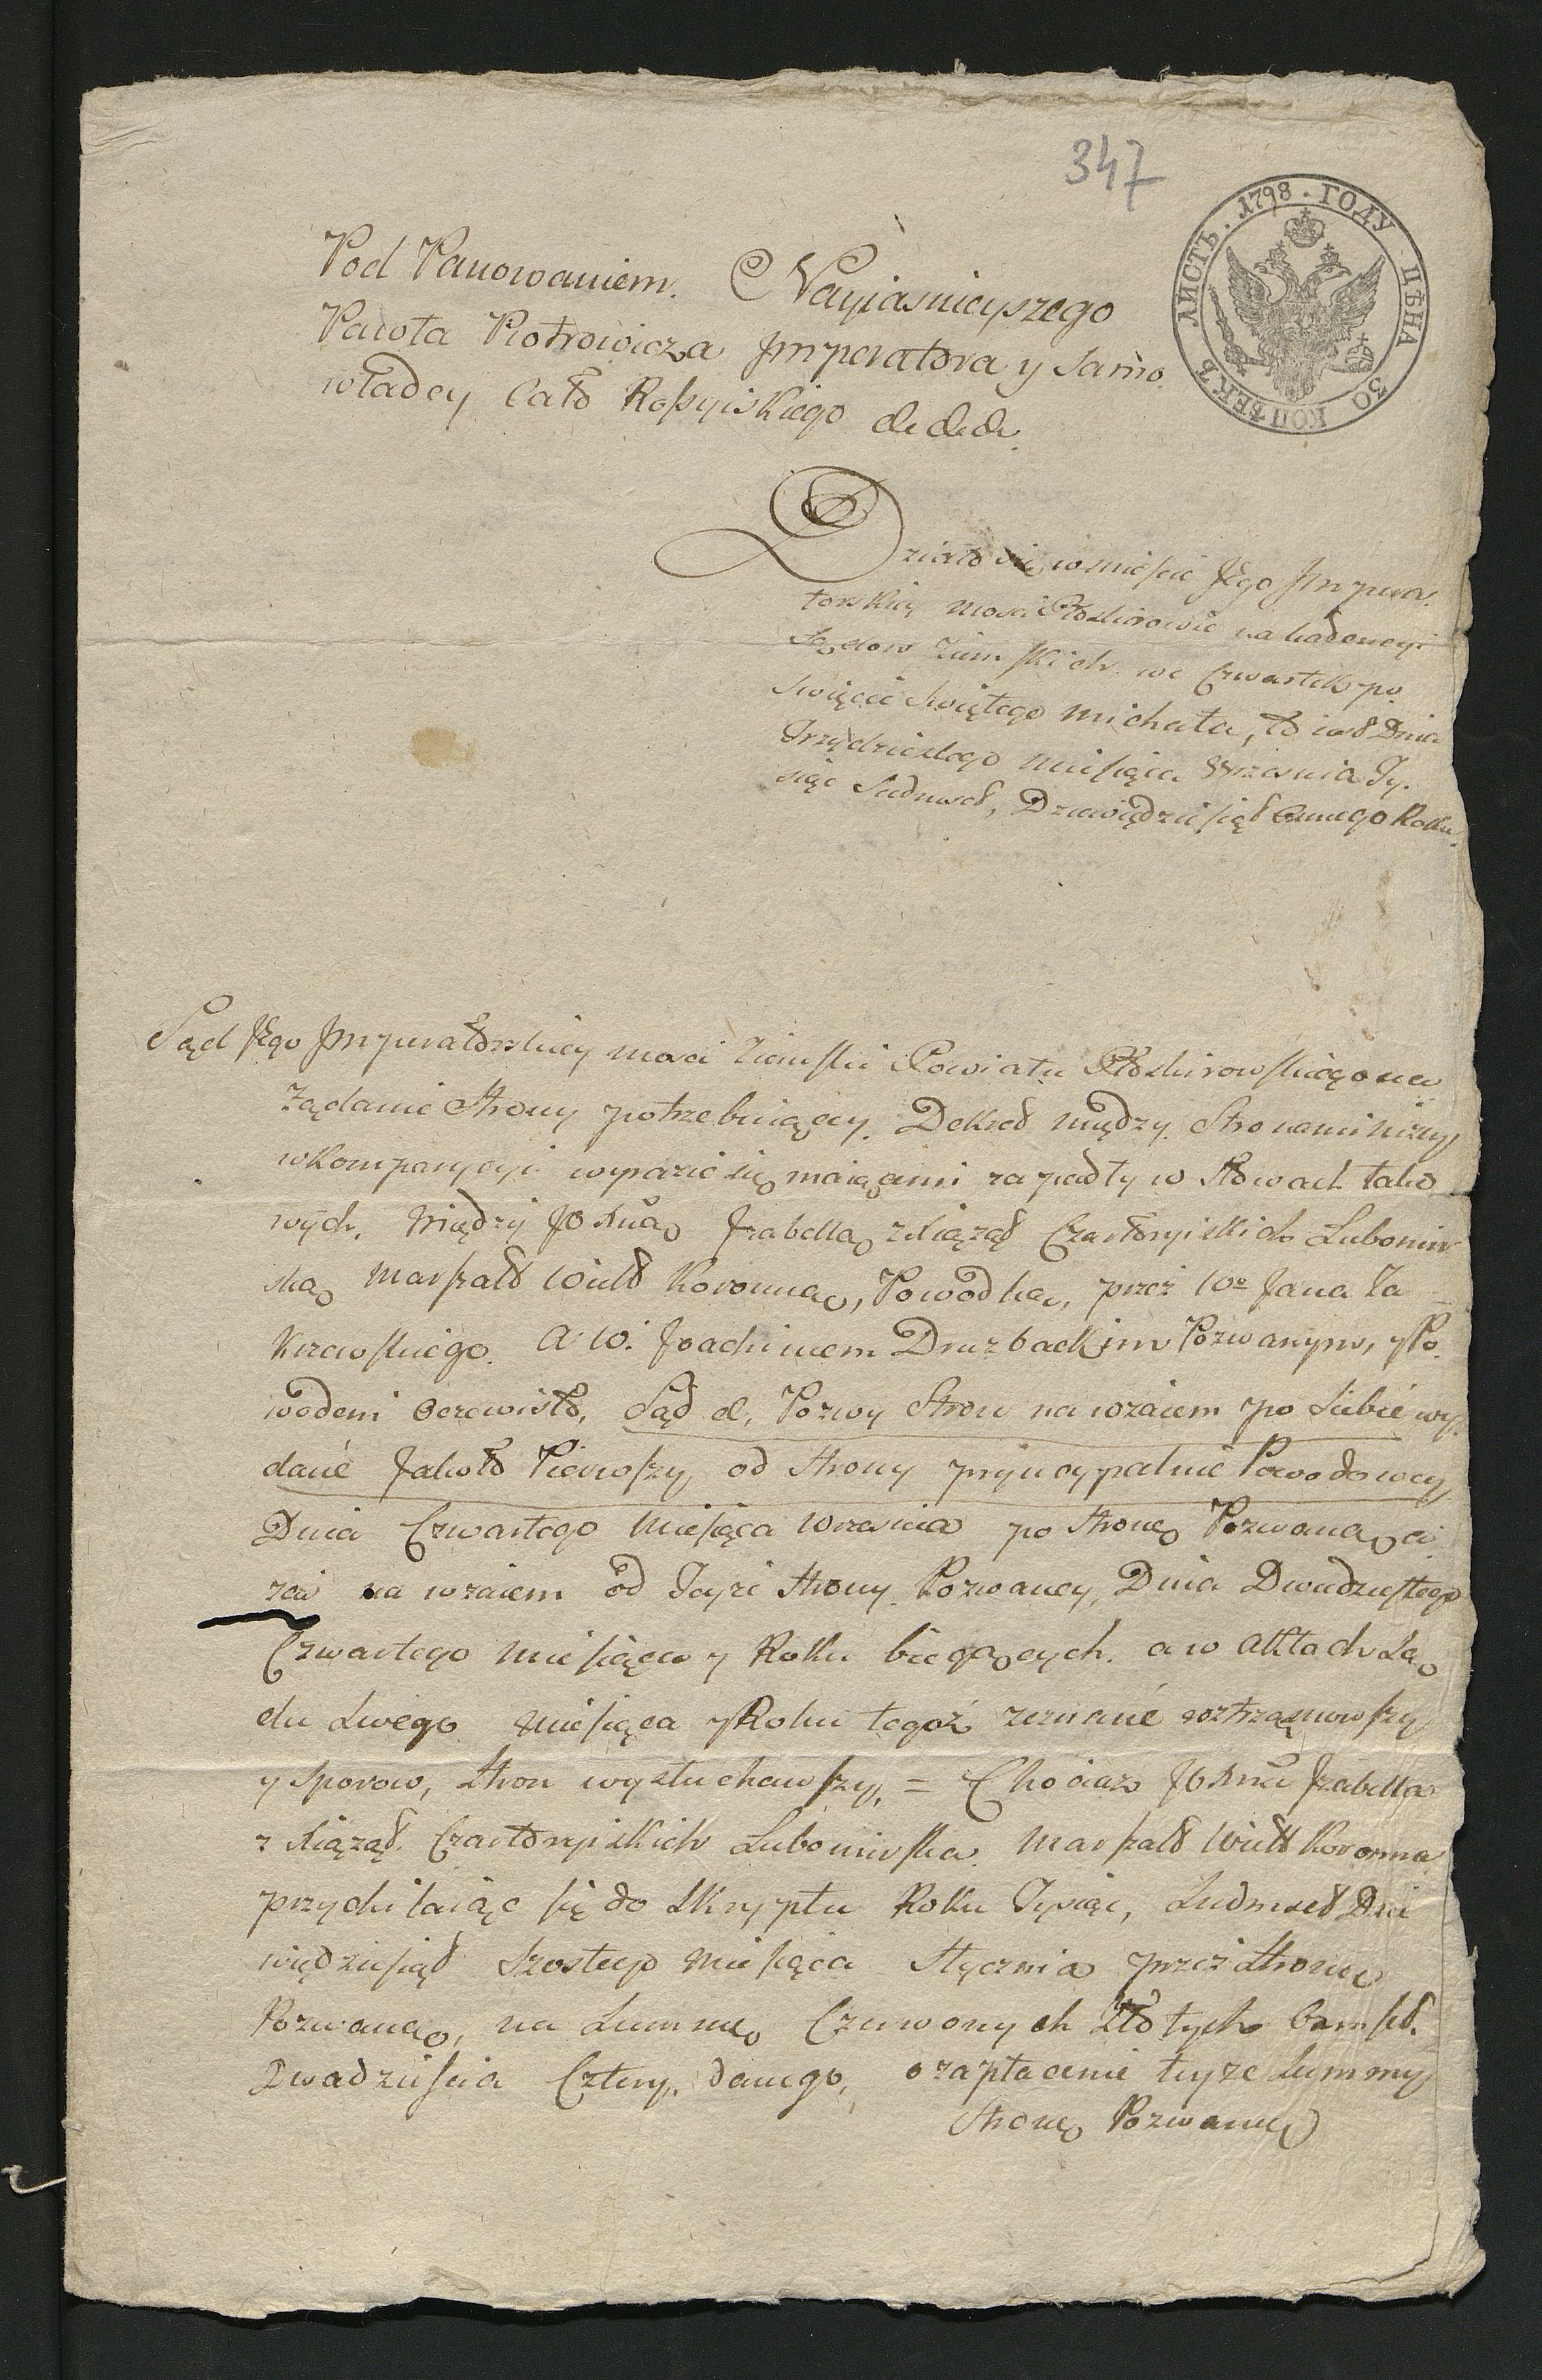 347
ЛИСТЪ. 1798. ГОДУ ЦѢНА 30 КОПѢЕКЪ
Pod Panowaniem. Nayiasnieyszego
Pawła Piotrowicza Jmperatora y Samo
władcy Cało Rossyiskiego &c &c &c.
Działo się w mieście Jego Jmpera
torskiey Mosci Płoskirowie na kadencyi
Sądow Ziemskich. we Czwartek po
Swięcie Swiętego Michała, to iest Dnia
Trzydziestego Miesiąca Września Ty.
siąc Siedmset, Dziewiędziesiąt Osmego Roku.
Sąd Jego Jmperatorskiey Mosci Ziemski Powiatu Płoskirowskiego na
Żądanie Strony potrzebuiącey. Dekret między Stronami niżey
w Komparycyi wyrazić się maiącemi zapadły w Słowach tako
wych. Między JO Xną Jzabellą z Xiążąt Czartoryiskich Lubomir
ską Marszałk Wielk Koronną, Powodką, przez Wo Jana Za
Krzewskiego. A W. Joachimem Druzbackim Pozwanym, y Po
wodem Oczewisto, Sąd &. Pozwy Stron na wzaiem po Siebie wy
dane Jakoto Pierwszy od Strony pryncypalnie Powodowey
Dnia Czwartego Miesiąca Wrzesnia po Stronę Pozwaną a
zaś na wzaiem od Teyże Strony Pozwaney, Dnia Dwudziestego
Czwartego Miesiąca y Roku bieżących. a w Aktach Są
du Swego Miesiąca y Roku tegoż zeznane roztrząsnowszy
y Sporow, Stron wysłuchawszy, = Chociaz JO Xna Jzabella
z Xiążąt. Czartoryiskich Lubomirska. Marszałk Wielk Koronna
przychilaiąc się do Skryptu Roku Tysiąc, Siedmset Dzie
więdziesiąt Szostego Miesiąca Stycznia przez Stronę
Pozwaną, na Summę Czerwonych Złotych Osmset.
Dwadzieścia Cztery. danego, o zapłacenie teyże Summy
Stronę Pozwaną